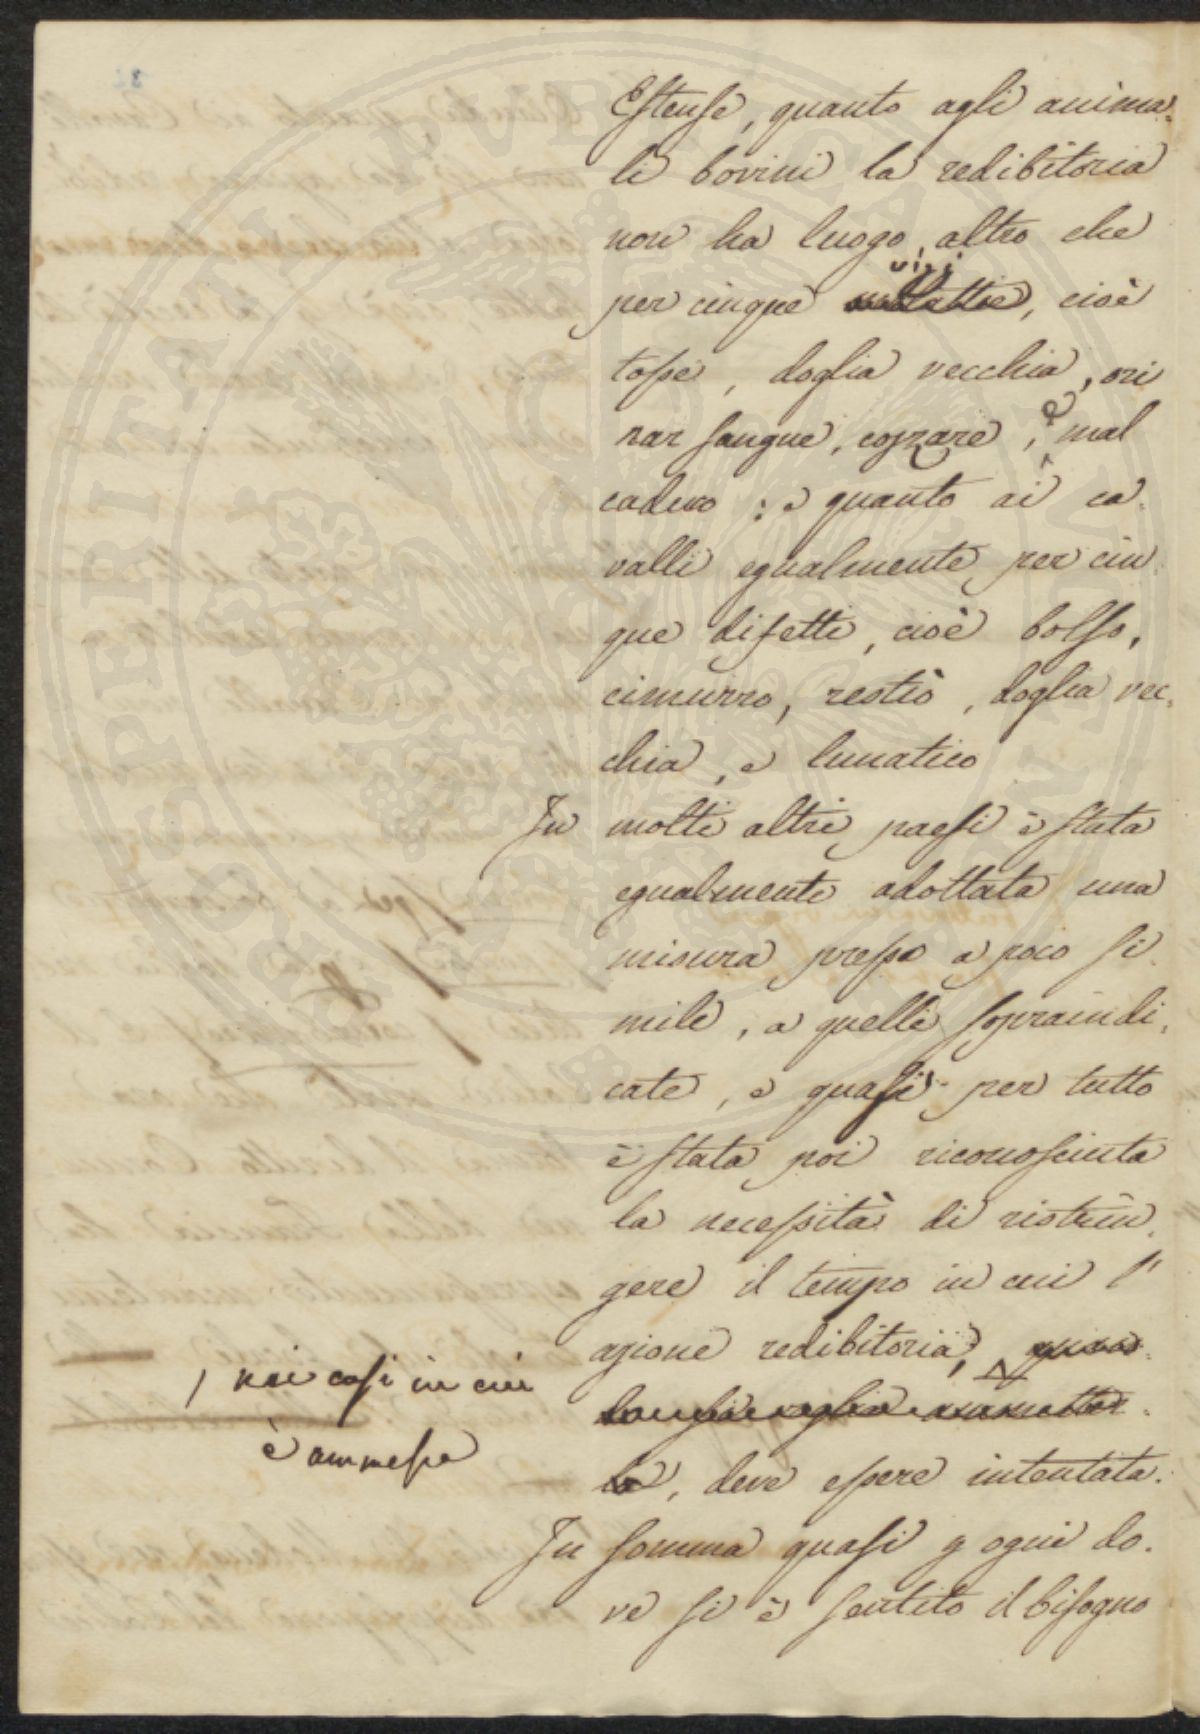 Estense, quanto agli anima-
li bovini la redibitoria
non ha luogo altro che
vizi
per cinque malattie, cioè
tosse, doglia vecchia, ori
e
nar sangue, copzare, mal
caduco : e quanto ai ca-
valli egualmente per cin-
que difetti, cioè bolso,
cimurro, restiò, doglia vec-
chia, e lunatico
In molti altri paesi è stata
egualmente adottata una
misura presso a poco si-
mile, a quelle sopraindi-
cate, e quasi per tutto
è stata poi riconosciuta
la necessità di ristrin-
gere il tempo in cui l'
azione redibitoria, quan-
do la si voglia ammetter-
la, deve essere intentata.
, nei casi in cui
è ammessa
In somma quasi p ogni do-
ve si è sentito il bisogno
PROSPERITATI PUBLICAE